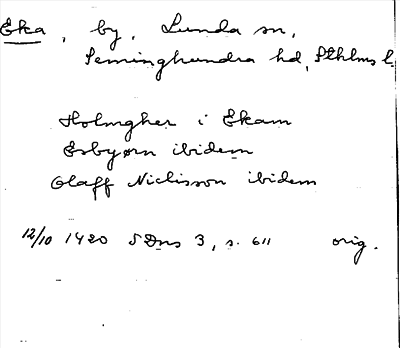 Eka, by, Lunda sn,
Seminghundra hd, Sthlms l.
Holmgher i Ekam
Esbyørn ibidem
Olaff Niclisson ibidem
12/10 1420 SDns 3, s. 611 orig.